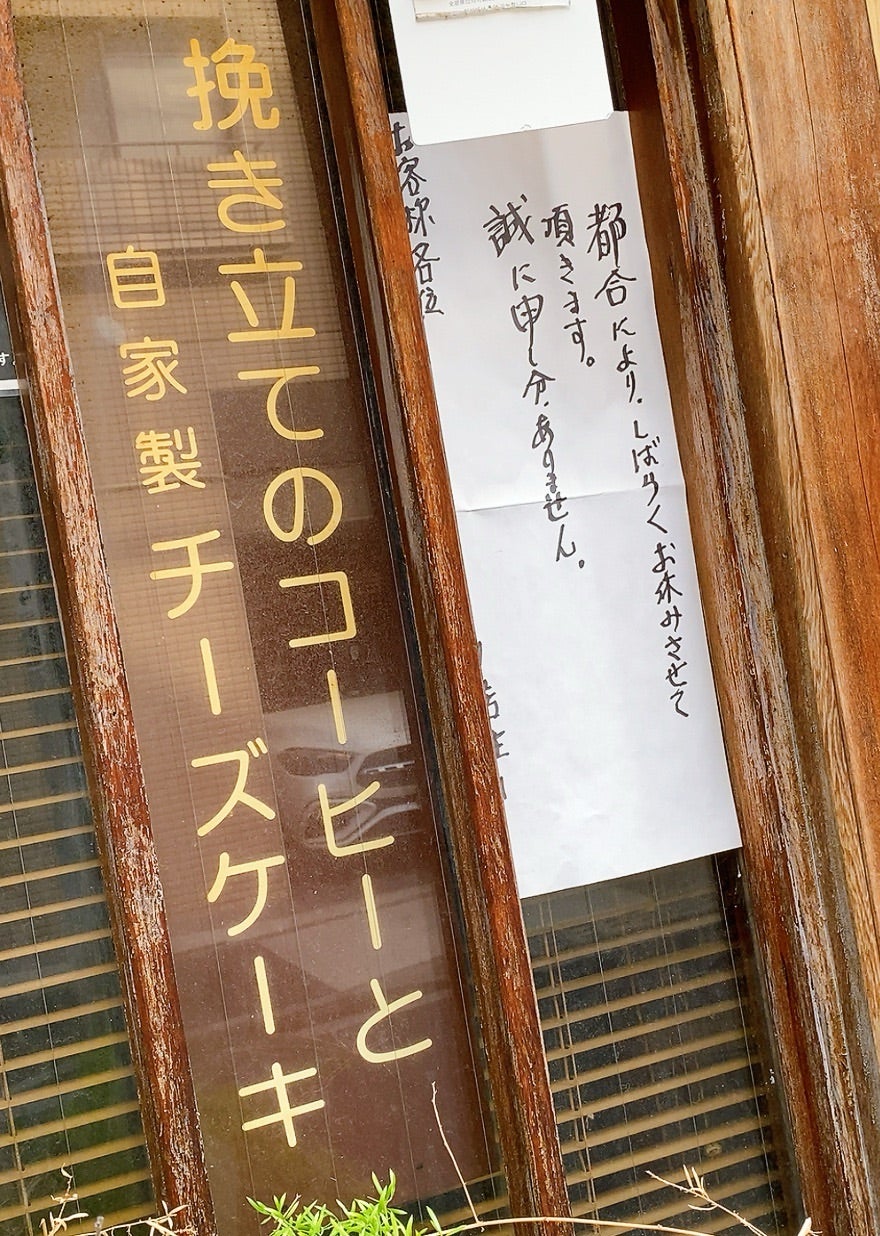 都合により、しばらくお休みさせて
頂きます。
誠に申し分ありません。
お客様各位
挽き立てのコーヒーと
自家製チーズケーキ